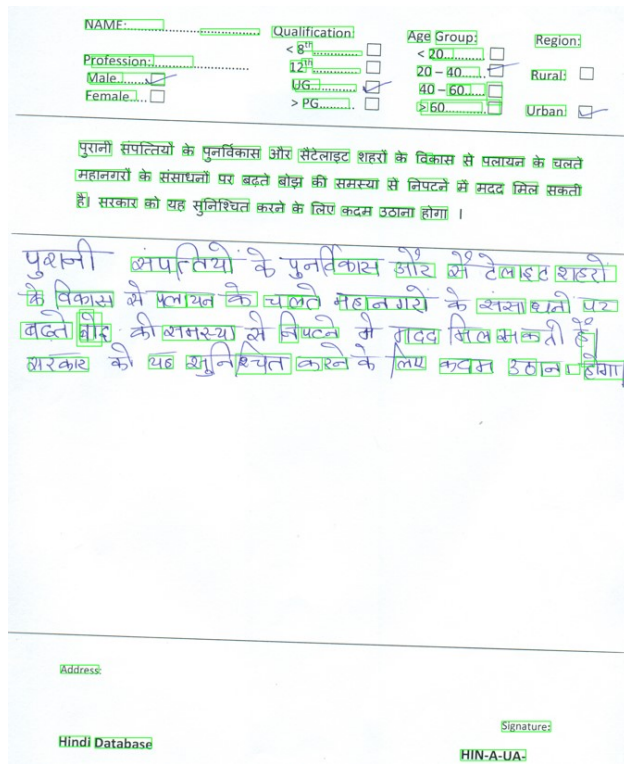 NAME: ........................ Qualification: Age Group: Region:
< 8th ............ < 20..........
Profession: ........................ 12th ............ 20 – 40...... Rural:
Male........ UG........... 40 – 60......
Female.... > PG......... > 60........... Urban:
पुरानी संपत्तियों के पुनर्विकास और सैटेलाइट शहरों के विकास से पलायन के चलते
महानगरों के संसाधनों पर बढ़ते बोझ की समस्या से निपटने में मदद मिल सकती
है। सरकार को यह सुनिश्चित करने के लिए कदम उठाना होगा ।
पुरानी संपत्तियों के पुनर्विकास और सैटेलाइट शहरों
के विकास से पलायन के चलते महानगरों के संसाधनो पर
बढते बोझ की समस्या से निपटने मे मदद मिल सकती है।
सरकार को यह सुनिश्चित करने के लिए कदम उठाना होगा
Address:
Signature:
Hindi Database
HIN-A-UA-